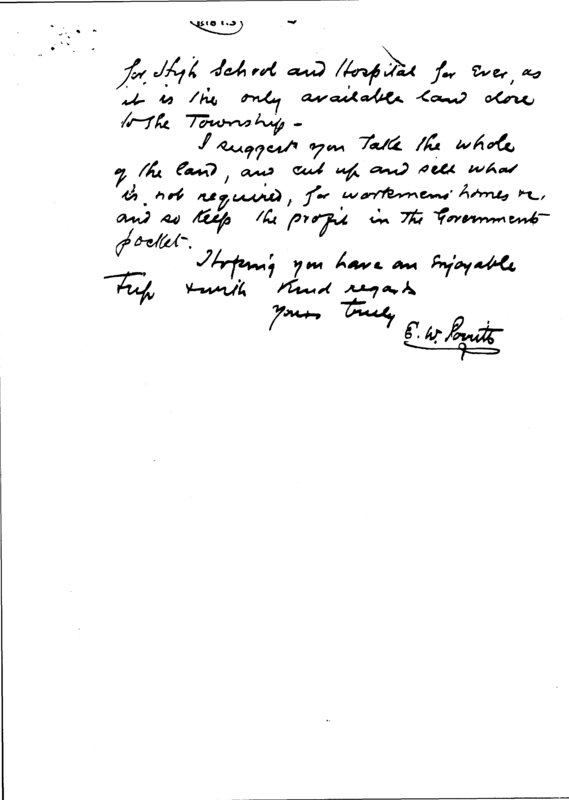 for High School and Hospital for Ever, as
it is the only available land close
to the Township -
I suggest you Take the whole
of the land, and cut up and sell what
is not required, for workmens homes &c.
and so keep the profit in the Governments
pocket.
Hoping you have an Enjoyable
Trip & with Kind regards
yours truly
E. W. Porritt